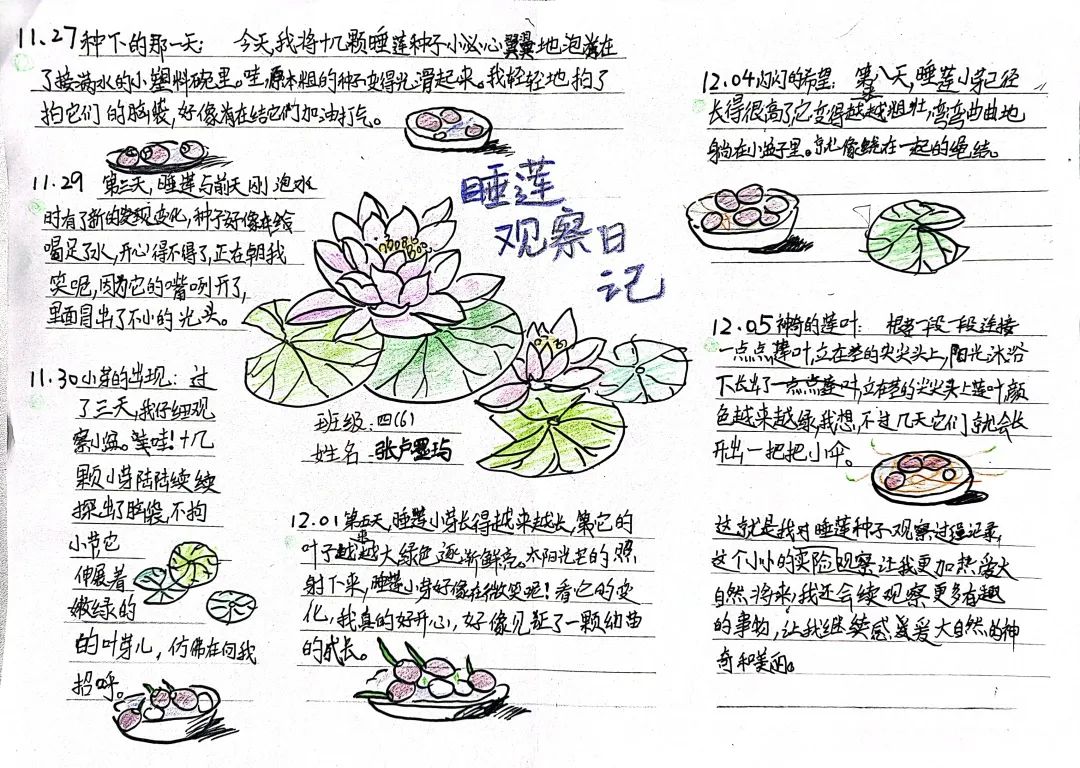 睡莲
观察日
记
班级:四(6)
姓名 张卢墨
11.27种下的那一天: 今天,我将十几颗睡莲种子小心翼翼地泡在
了接满水的小塑料碗里。哇,原本粗的种子变得光滑起来。我轻轻地拍了
拍它们的脑袋,好像肖在结它们加油打气。
11.29 第三天,睡莲与前天刚泡水
时有了新的发现变化,种子好像在给
喝足了水,开心得不得了,正在朝我
笑呢,因为它的嘴咧开了,
里面冒出了不小的光头。
11.30小芽的出现:过
了三天,我仔细观
察小盆。哇!十几
颗小芽陆陆续续
探出了脑袋,不拘
小节也
伸展着
嫩绿的
的叶芽儿,仿佛在向我
招呼。
12.01第五天,睡莲小芽长得越来越长,第它的
叶子越来越大绿色逐渐鲜亮。太阳光芒的照
射下来,睡莲小芽好像在微笑吧!看它的变
化,我真的好开心,好像见证了一颗幼苗
的成长。
12.04闪闪的希望: 第八天,睡莲小芽已径
长得很高了它变得越越粗壮,弯弯曲曲地
躺在小盆子里。就像绕在一起的绳结。
12.05神奇的莲叶: 根茎一段一段连接
一点点莲叶立在茎的尖尖头上,阳光沐浴
下长出了一点点莲叶,立在茎的尖尖头上莲叶颜
色越来越绿,我想,不过几天它们就会长
开出一把把小伞。
这就是我对睡莲种子观察过程记录,
这个小小的实险观察让我更加热爱大
自然将来,我还会续观察更多有趣
的事物,让我继续感爱大自然的神
奇和美丽。